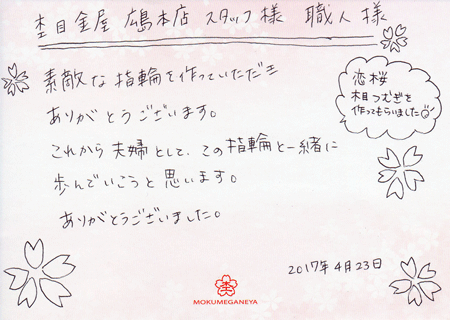 杢目金屋 広島本店 スタッフ様 職人様
素敵な指輪を作っていただき
ありがとうございます。
これから夫婦として、この指輪と一緒に
歩んでいこうと思います。
ありがとうございました。
恋桜
木目つむぎを
作ってもらいました
2017年4月23日
MOKUMEGANEYA